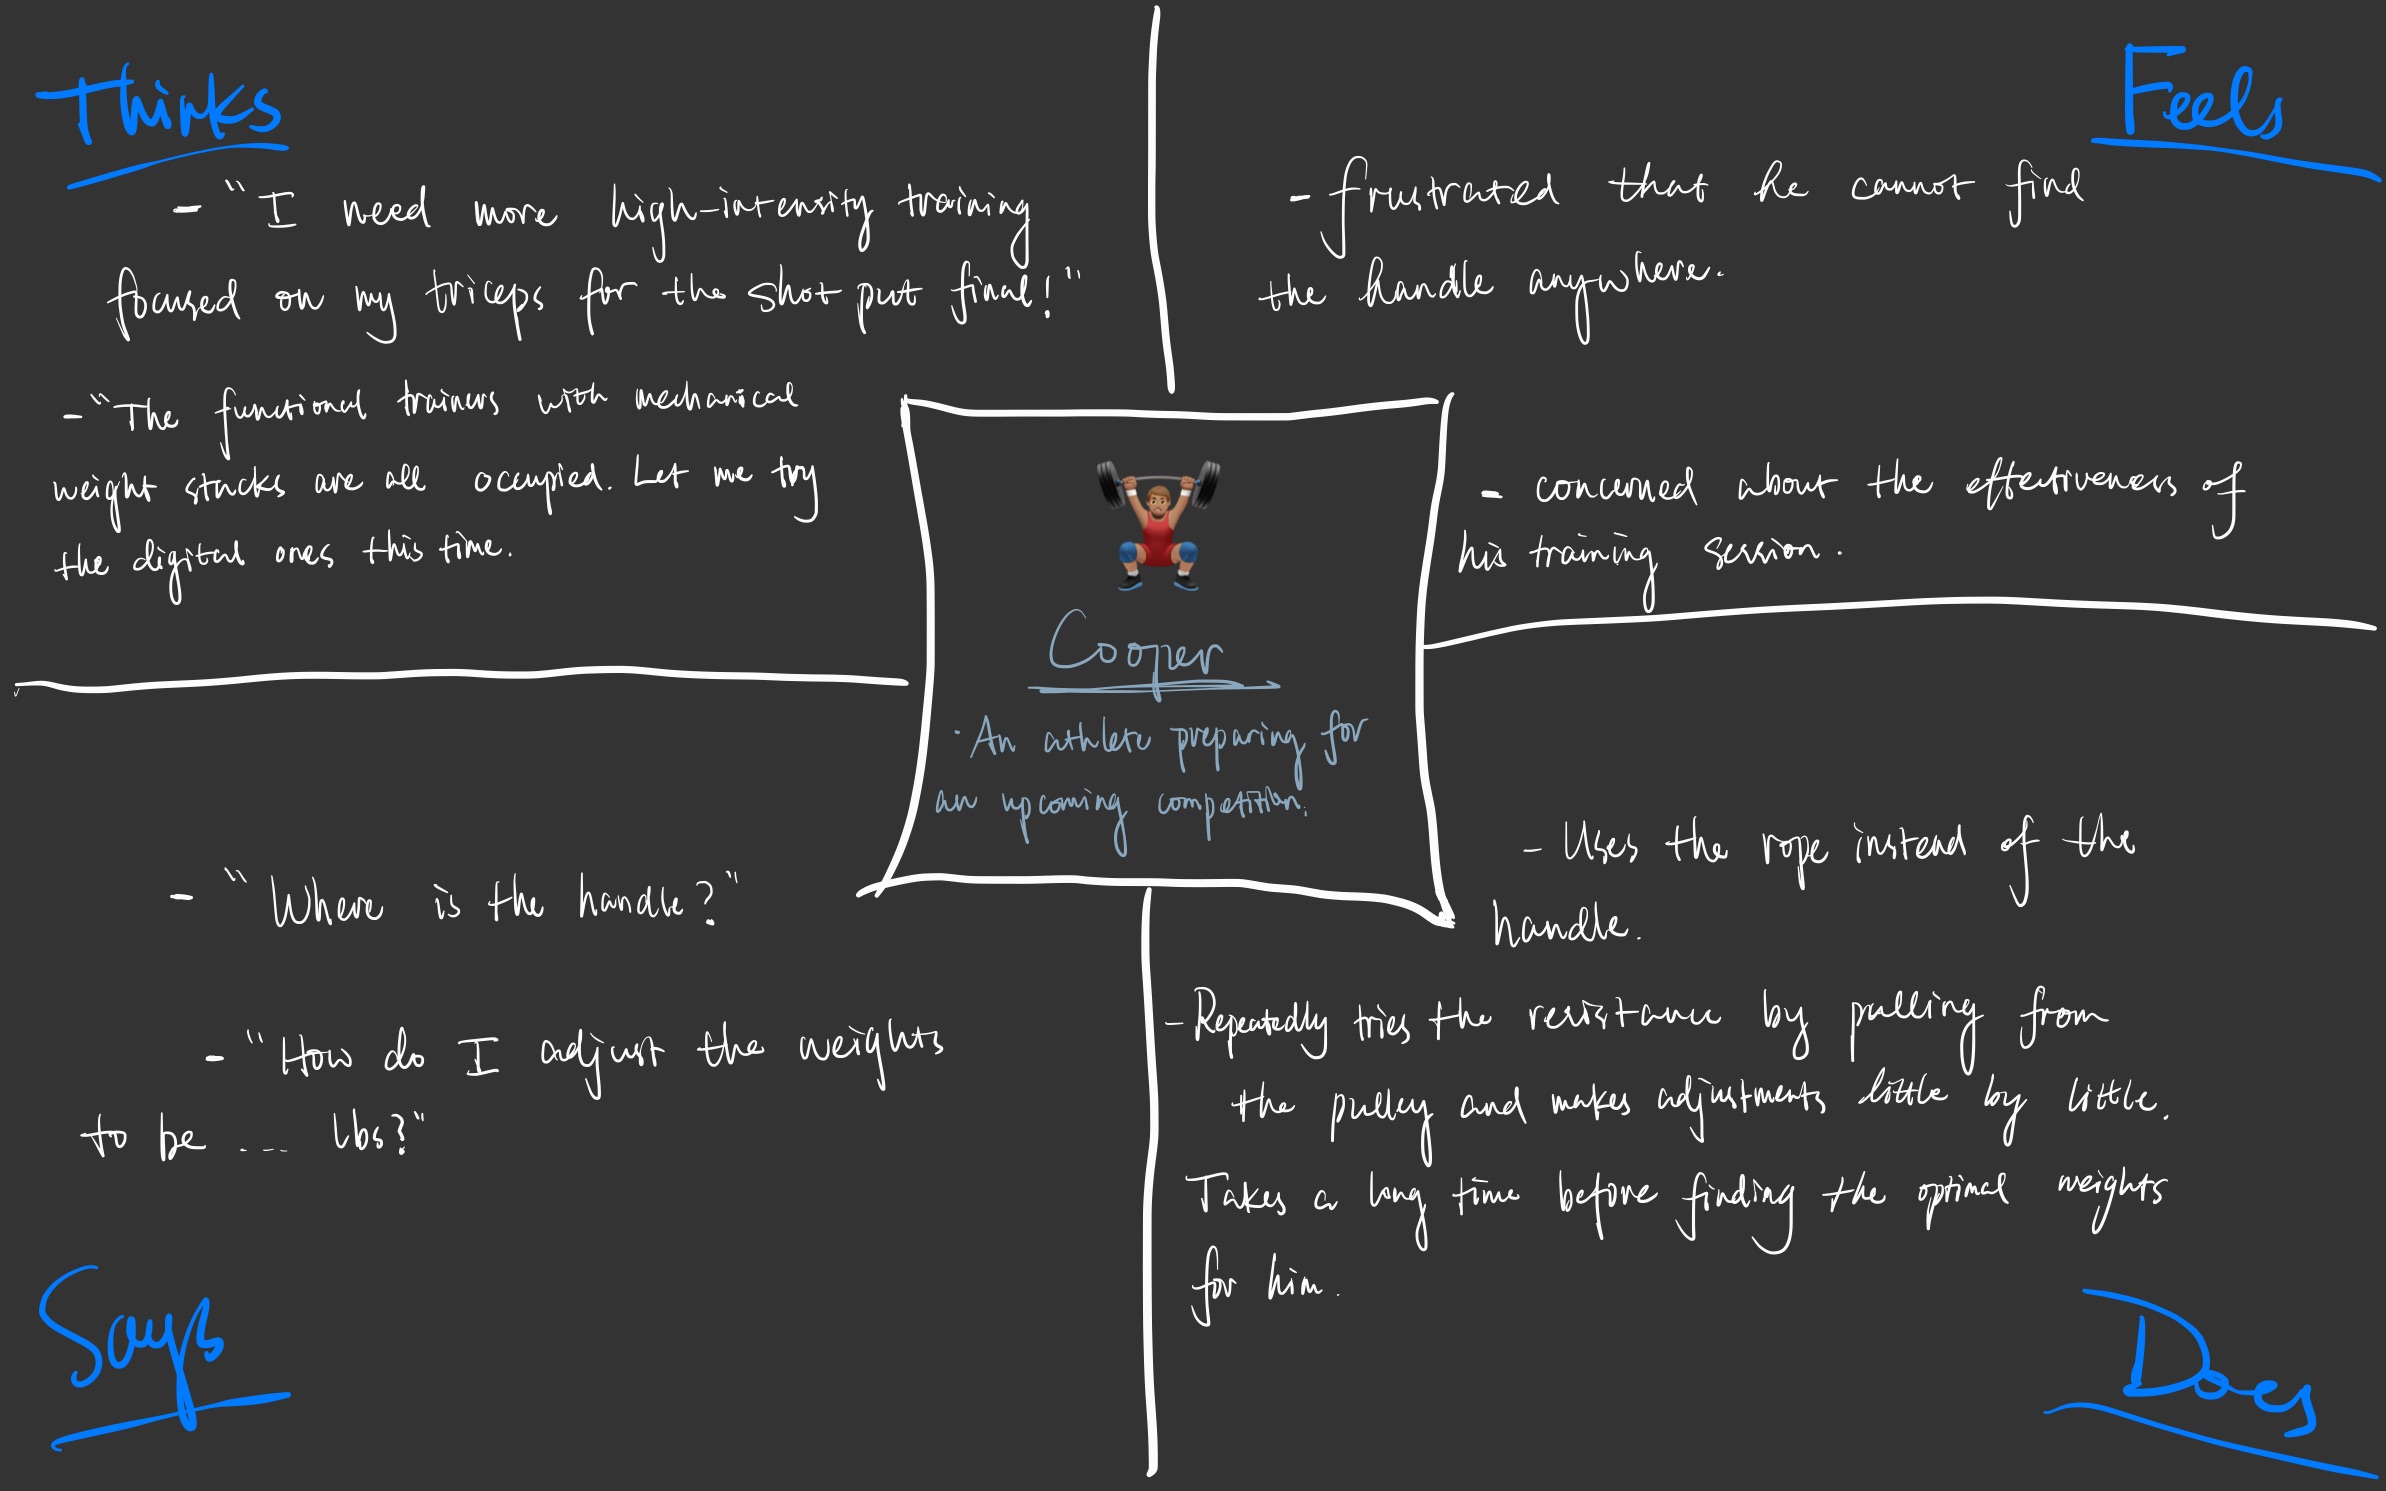 Thinks
- "I need more high-intensity training
focused on my triceps for the shot put final!"
- "The functional trainers with mechanical
weight stacks are all occupied. Let me try
the digital ones this time.
Feels
- frustrated that he cannot find
the handle anywhere.
- concerned about the effectiveness of
his training session.
Cooper
· An athlete preparing for
an upcoming competition.
- "Where is the handle?"
- "How do I adjust the weights
to be .... lbs?"
Says
- Uses the rope instead of the
handle.
- Repeatedly tries the resistance by pulling from
the pulley and makes adjustments little by little.
Takes a long time before finding the optimal weights
for him.
Does